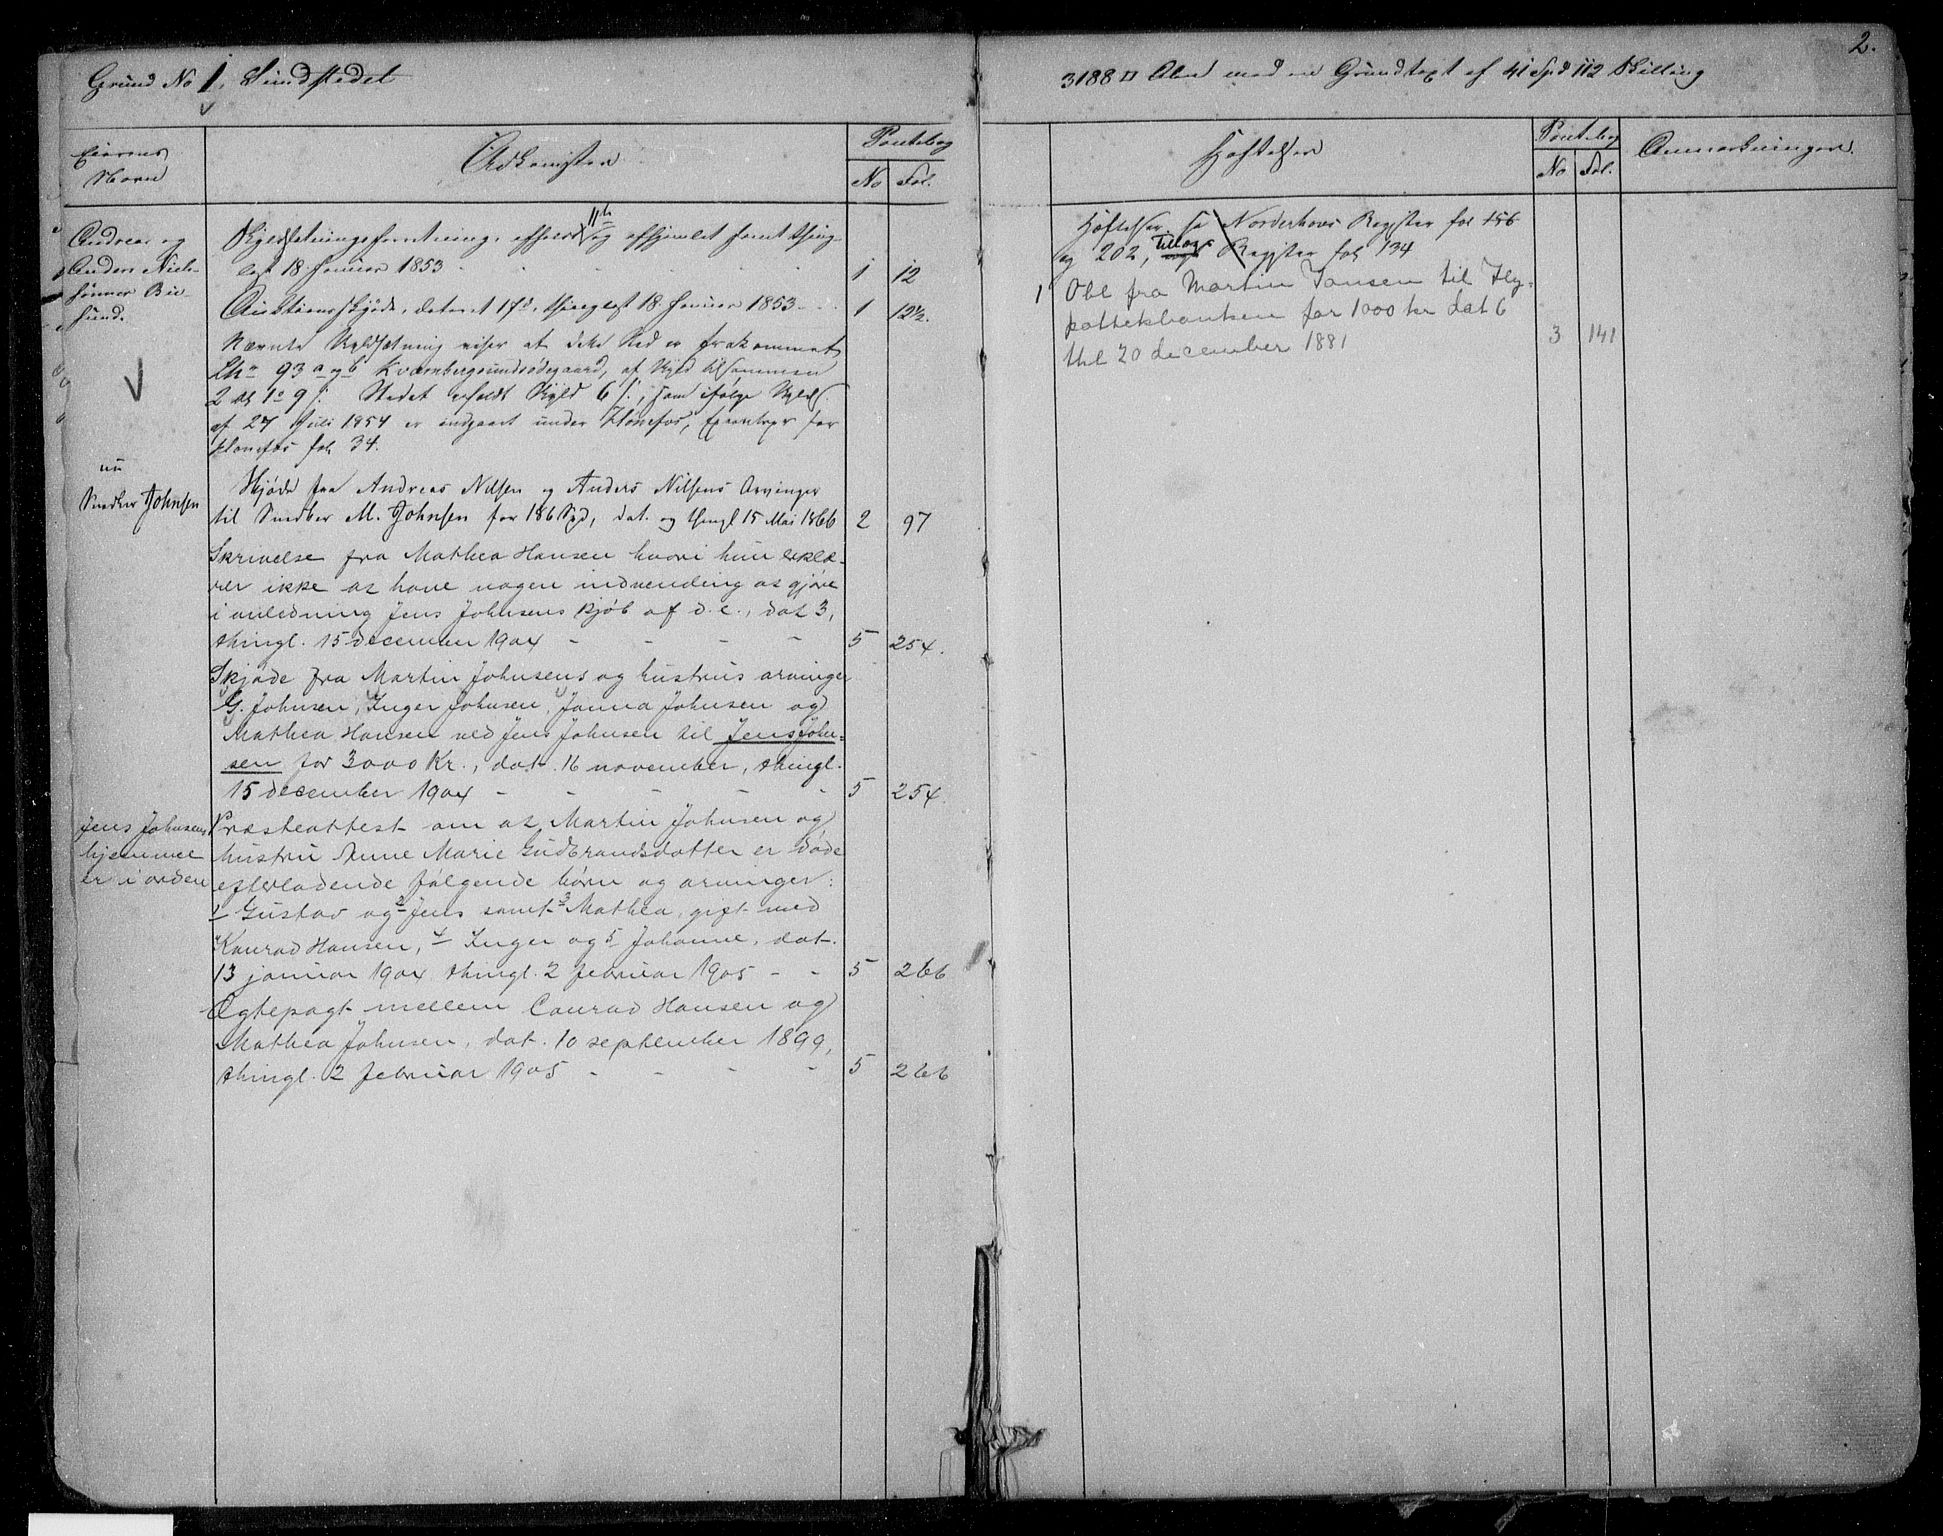 2.
Grund No 1, Sundstedet
3188 □ Alen med en Grundtaxt af 41 Spd 112 Skilling
Eierens Navn
Adkomsten
Pantebog
No Fol.
Andreas og
Anders Niels-
sønner Bu-
sund.
Skyldsætningsforretning, afholdt 11te og afhjemlet samt thing-
lyst 18 Januar 1853 1 12
Auktionsskjøde, dateret 17d, thinglyst 18 Januar 1853 1 12½.
Nævnte Skyldsætning viser at dette Sted er frakommet
LNo 93 a og b Kvernbergsundsødegaard, af Skyld tilsammen
9 /. Stedet erholdt Skyld 6 /., som ifølge
af 27 Juli 1854 er indgaaet under Hønefos, for
Hønefos fol 34.
nu
Snedker Johnsen
Skjøde fra Andreas Nilsen og Anders Nilsens Arvinger
til Snedker M. Johnsen for 186 Spd, dat. og thingl 15 Mai 1866 2 97
Skrivelse fra Mathea Hansen hvori hun erklæ-
rer ikke at have nogen indvending at gjøre
i anledning Jens Johnsens kjøb af d. e., dat 3,
thingl. 15 december 1904 - - - - 5 254.
Skjøde fra Martin Johnsens og hustrus arvinger
G. Johnsen, Inger Johnsen, Janna Johnsen og
Mathea Hansen ved Jens Johnsen til Jens John-
sen for 3000 Kr., dat. 16 november, thingl.
15 december 1904 - - - - - 5 254.
Jens Johnsens
hjemmel
er i orden
Præsteattest om at Martin Johnsen og
hustru Anne Marie Gudbrandsdatter er døde
efterladende følgende børn og arvinger:
1 Gustav og 2 Jens samt 3 Mathea, gift med
Konrad Hansen, 4 Inger og 5 Johanne, dat.
13 januar 1904 thingl. 2 februar 1905 - - 5 266
Ægtepagt mellem Conrad Hansen og
Mathea Johnsen, dat. 10 september 1899,
thingl. 2 februar 1905 - - - - 5 266
Hæftelser
Pantebog
No Fol.
Anmærkninger.
Hæftelser, se Norderhovs Register fol 156
og 202, Tillægs Register fol 134
1 Obl fra Martin Jansen til Hy-
pothekbanken for 1000 kr dat 6
thl 20 december 1881 3 141